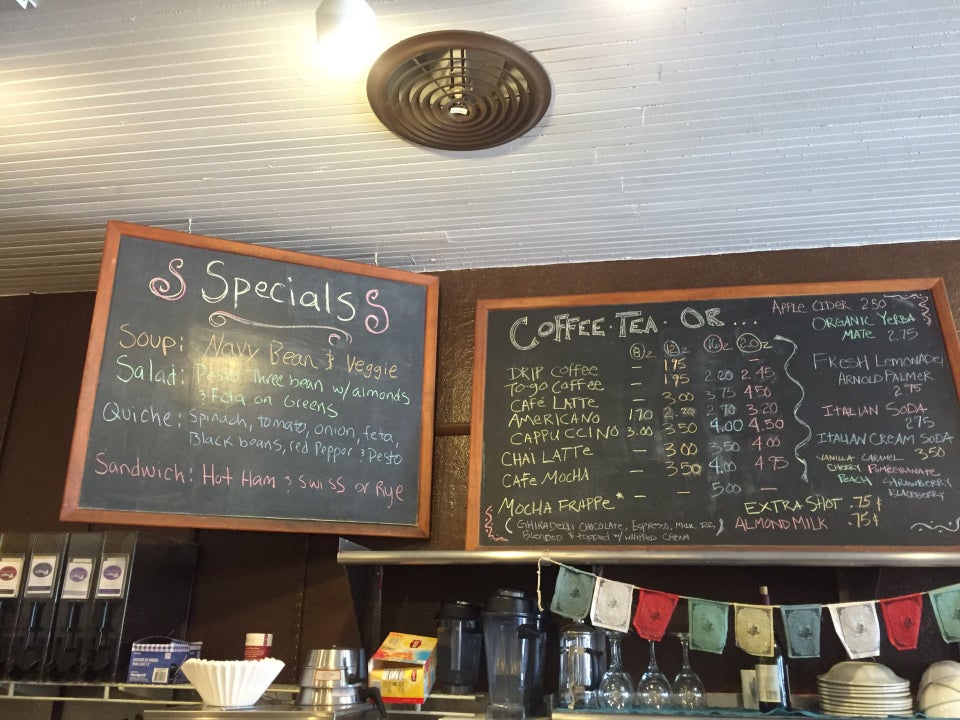 Specials
Soup: Navy Bean & Veggie
Salad: Pesto Three bean w/almonds
& Feta on Greens
Quiche: Spinach, tomato, onion, feta,
Black beans, red Pepper & Pesto
Sandwich: Hot Ham & Swiss or Rye
COFFEE·TEA·OR....
8oz 12oz 16oz 20oz
DRIP COFFEE – 1.95 –
TO-GO COFFEE – 1.95 2.20 2.45
CAFÉ LATTE – 3.00 3.75 4.50
AMERICANO 1.70 2.20 2.70 3.20
CAPPUCCINO 3.00 3.50 4.00 4.50
CHAI LATTE – 3.00 3.50 4.00
CAFE MOCHA – 3.50 4.00 4.95
MOCHA FRAPPE* – – 5.00 –
(GHIRADELLI CHOCOLATE, ESPRESSO, MILK, ICE,
Blended & topped w/WHIPPED CREAM
APPLE CIDER 2.50
ORGANIC YERBA
MATE 2.75
FRESH LEMONADE/
ARNOLD PALMER
2.75
ITALIAN SODA
2.75
ITALIAN CREAM SODA
3.50
VANILLA CARAMEL
CHERRY POMEGRANATE
PEACH STRAWBERRY
BLACKBERRY
EXTRA SHOT .75¢
ALMOND MILK .75¢